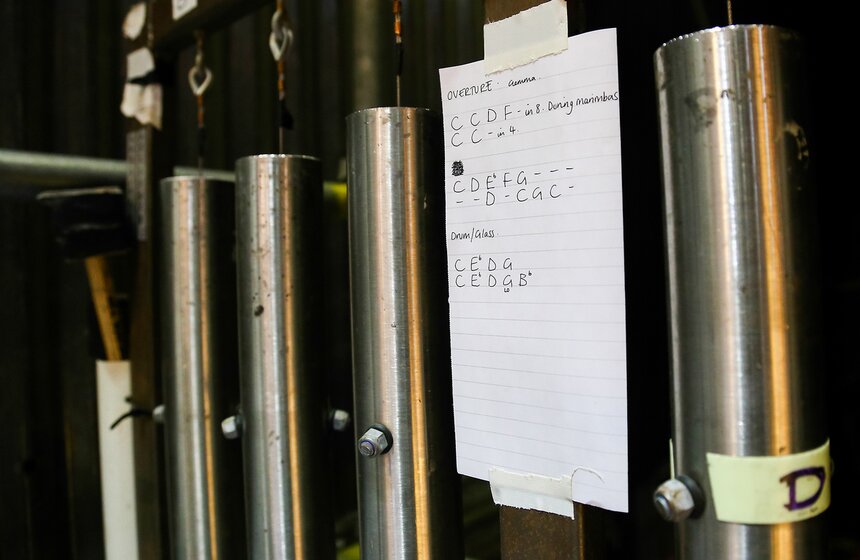 OVERTURE · Gemma.
C C D F - in 8. During marimbas
C C - in 4.
C D E♭ F G - - -
- - D - C G C -
Drum/Glass.
C E♭ D G
C E♭ D G B♭
LO
D